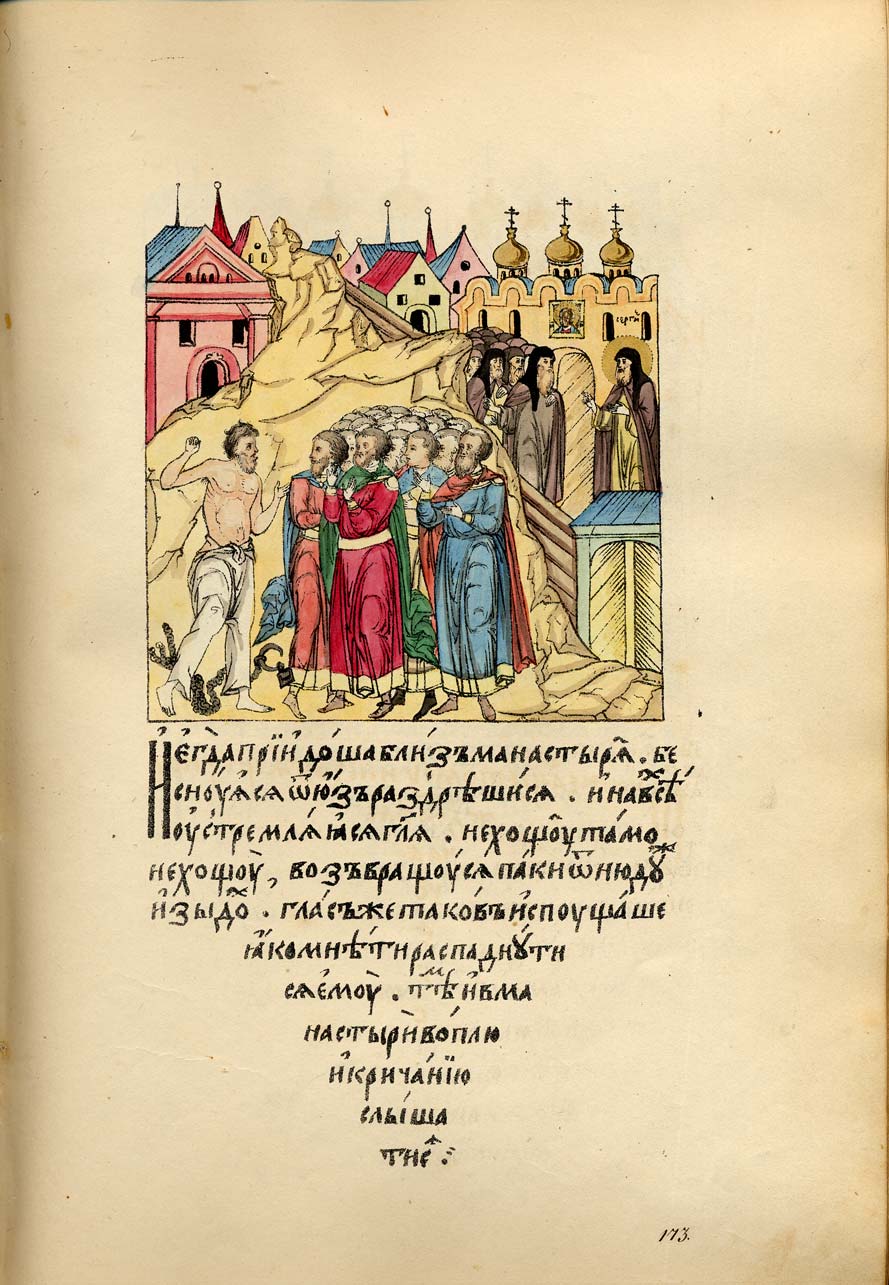 серги
Негда прїидоша близъ манастырѧ. бе
сноуѧсѧ ѿ юзъ раздрѣшисѧ. и на всѣх
оустремлѧѧсѧ глѧ. не хощоу тамо
не хощоу, возъвращоусѧ паки ѿнюдꙋж
изыдох. гласъ же таковъ испоущаше
ꙗко мнѣти распаднꙋти
сѧ емоу. тѣм и в ма
настыри воплю
и кричанїю
слыша
тисѧ :
173.